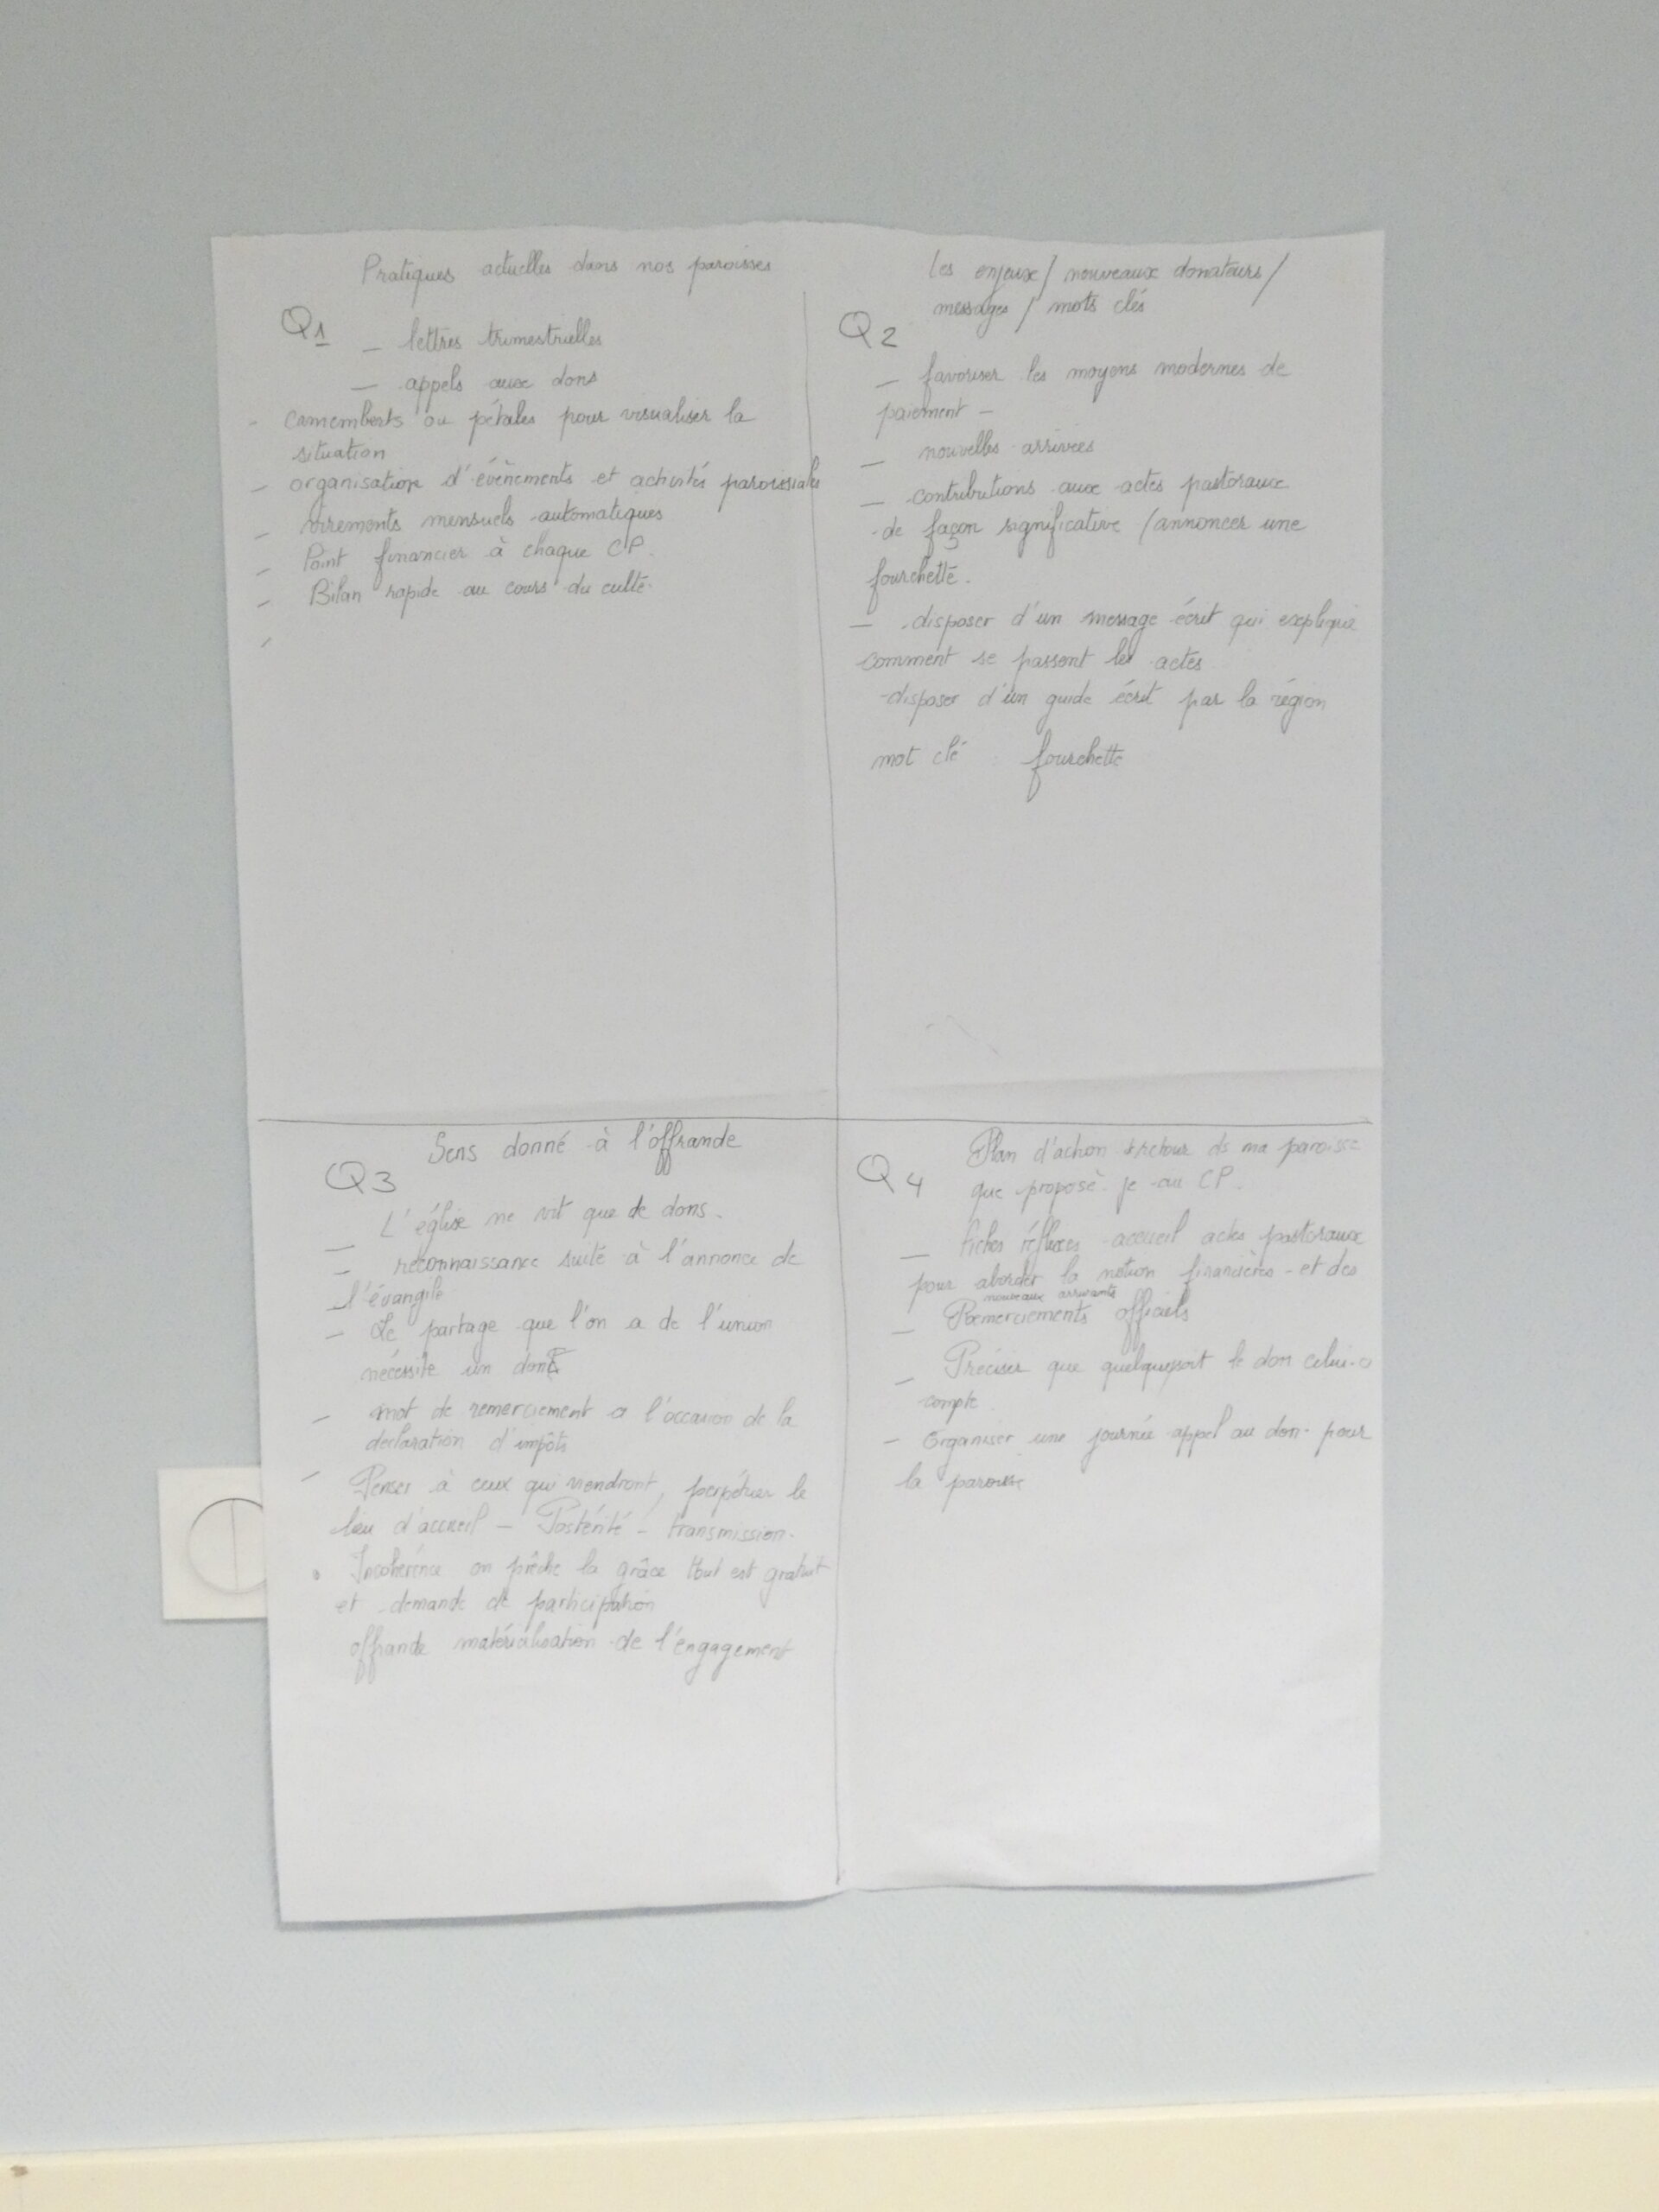 Pratiques actuelles dans nos paroisses
Q1
— lettres trimestrielles
— appels aux dons
- camemberts ou pétales pour visualiser la
situation
- organisation d'évènements et activités paroissiales
- virements mensuels automatiques
- Point financier à chaque CP.
- Bilan rapide au cours du culte.
-
les enjeux / nouveaux donateurs /
messages / mots clés
Q2
— favoriser les moyens modernes de
paiement -
— nouvelles arrivées
— contributions aux actes pastoraux
de façon significative / annoncer une
fourchette.
— disposer d'un message écrit qui explique
comment se passent les actes
- disposer d'un guide écrit par la région
mot clé : fourchette
Sens donné à l'offrande
Q3
— L'église ne vit que de dons.
— reconnaissance suite à l'annonce de
l'évangile
- Le partage que l'on a de l'union
nécessite un don
- mot de remerciement a l'occasion de la
déclaration d'impôts
- Penser à ceux qui viendront, perpétuer le
lieu d'accueil - Postérité - transmission.
• Incohérence on prêche la grâce tout est gratuit
et demande de participation
offrande matérialisation de l'engagement
Q4
Plan d'action retour ds ma paroisse
que propose-je au CP.
— fiches réflexes accueil actes pastoraux
pour aborder la notion financières - et des
nouveaux arrivants
- Remerciements officiels
- Préciser que quelquesoit le don celui-ci
compte
- Organiser une journée appel au don pour
la paroisse